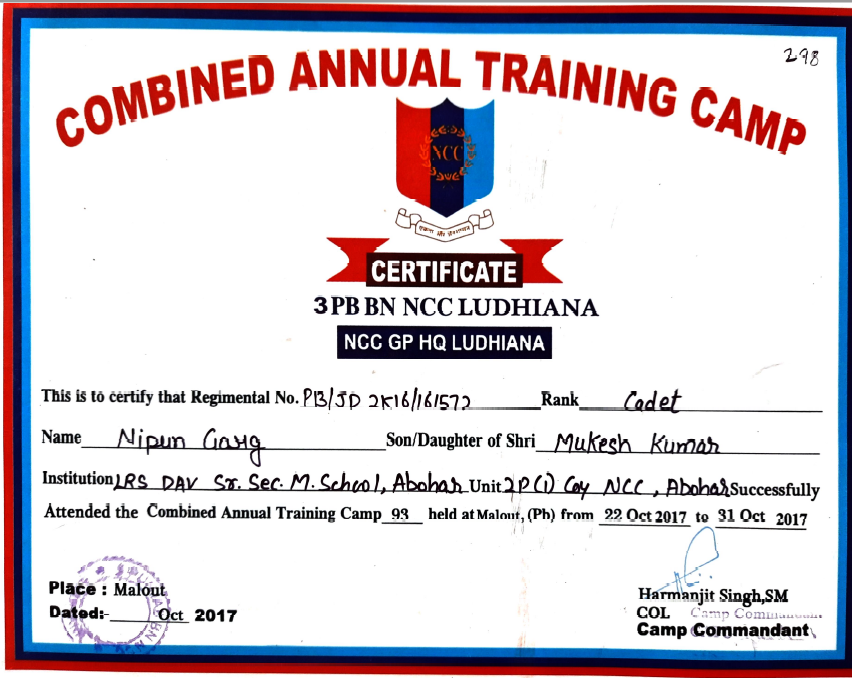 298
COMBINED ANNUAL TRAINING CAMP
NCC
एकता और अनुशासन
CERTIFICATE
3 PB BN NCC LUDHIANA
NCC GP HQ LUDHIANA
This is to certify that Regimental No. PB/JD 2K16/161572 Rank Cadet
Name Nipun Garg Son/Daughter of Shri Mukesh Kumar
Institution LRS DAV Sr. Sec. M. School, Abohar Unit 2P(1) Coy NCC, Abohar Successfully
Attended the Combined Annual Training Camp 93 held at Malout, (Pb) from 22 Oct 2017 to 31 Oct 2017
Place : Malout
Dated:- Oct 2017
Harmanjit Singh,SM
COL Camp Commandant
Camp Commandant